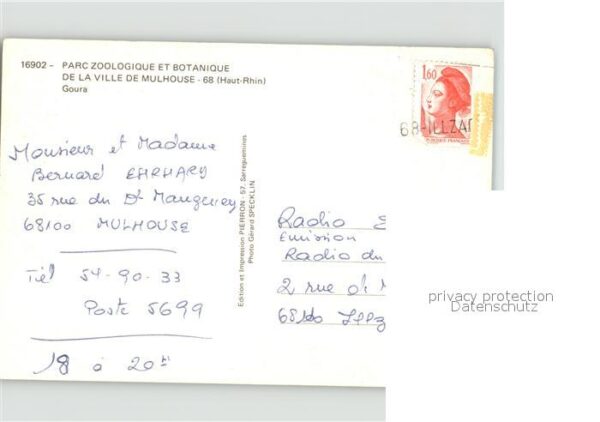 16902 - PARC ZOOLOGIQUE ET BOTANIQUE
DE LA VILLE DE MULHOUSE - 68 (Haut-Rhin)
Goura
1,60
68-ILLZA
Monsieur et Madame
Bernard EHRHARY
35 rue du Dr Mangeney
68100 MULHOUSE
Tél 54-90-33
Poste 5699
18 à 20H
Edition et Impression PIERRON - 57, Sarreguemines
Photo Gérard SPECKLIN
Radio
Emission
Radio du
2 rue de
Illz
privacy protection
Datenschutz